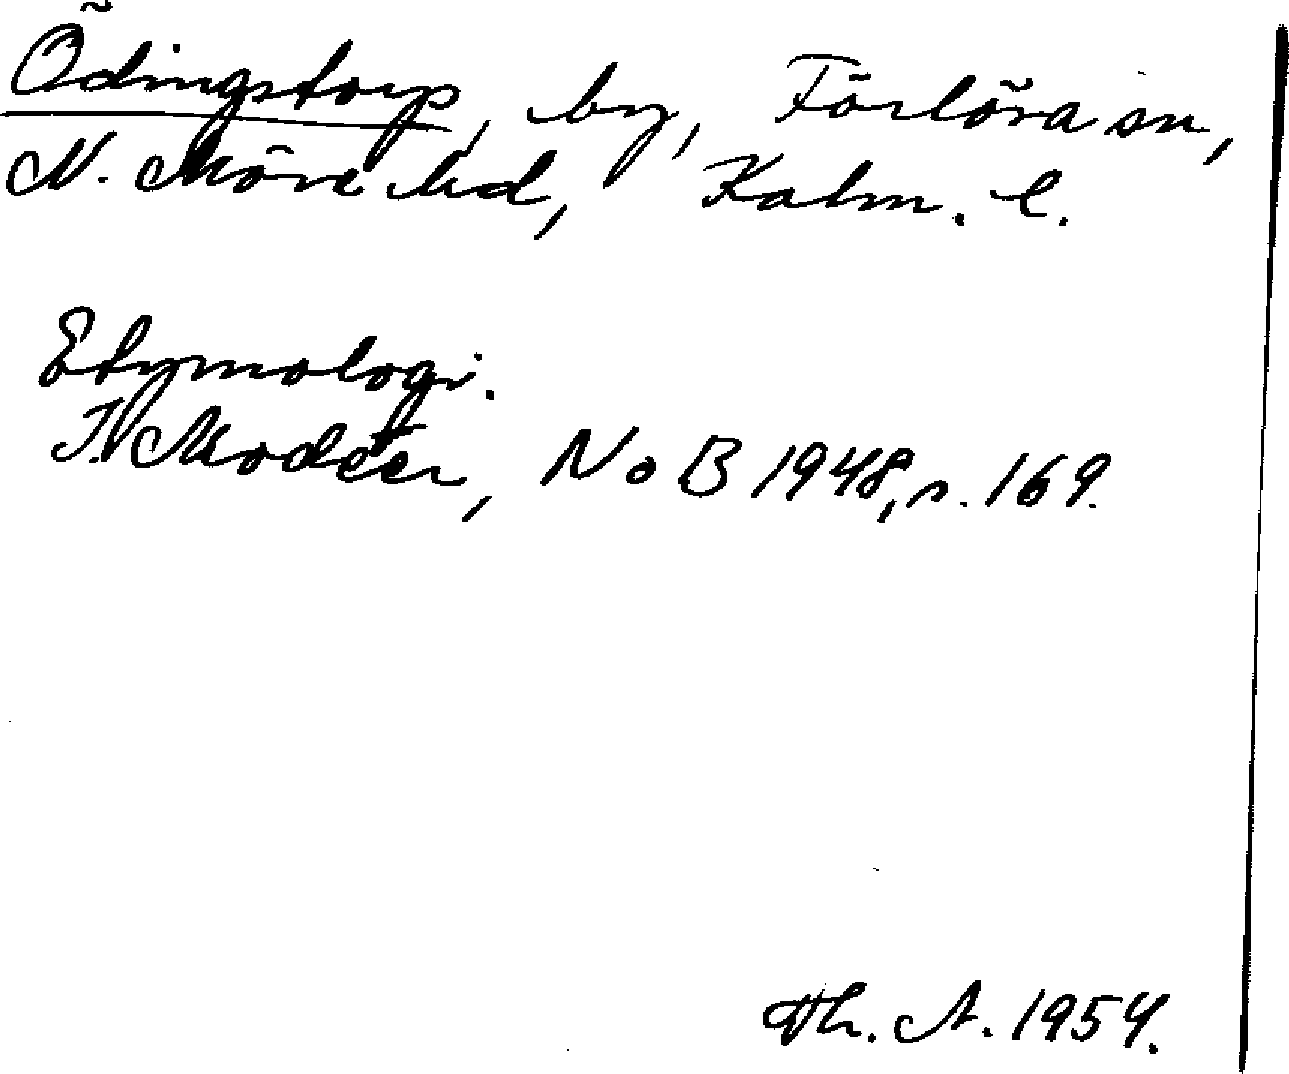 Ödingstorp, by, Förlösa sn,
N. Möre hd, Kalm. l.
Etymologi.
I. Modéer, NoB 1948, s. 169.
Th. A. 1954.